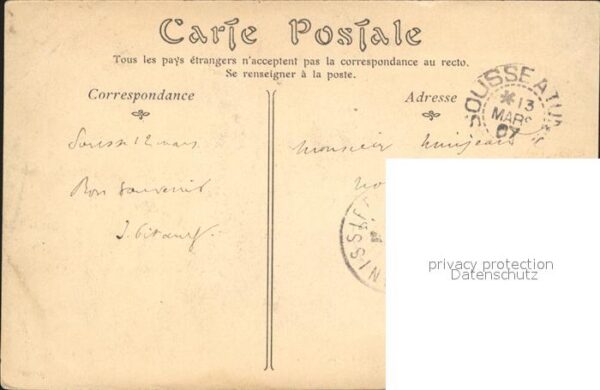 Carte Postale
Tous les pays étrangers n'acceptent pas la correspondance au recto.
Se renseigner à la poste.
Correspondance
Sousse 12 mars
Bon Souvenir
Adresse
SOUSSE
* 13
MARS
07
Monsieur
privacy protection
Datenschutz